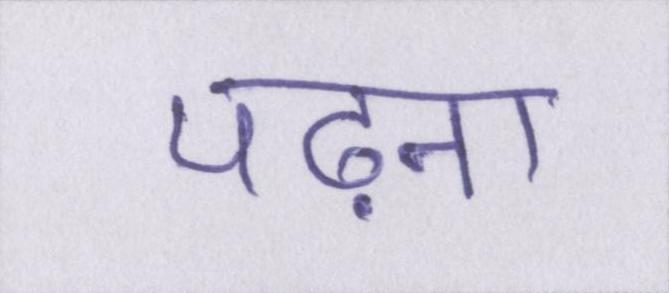 पढ़ना